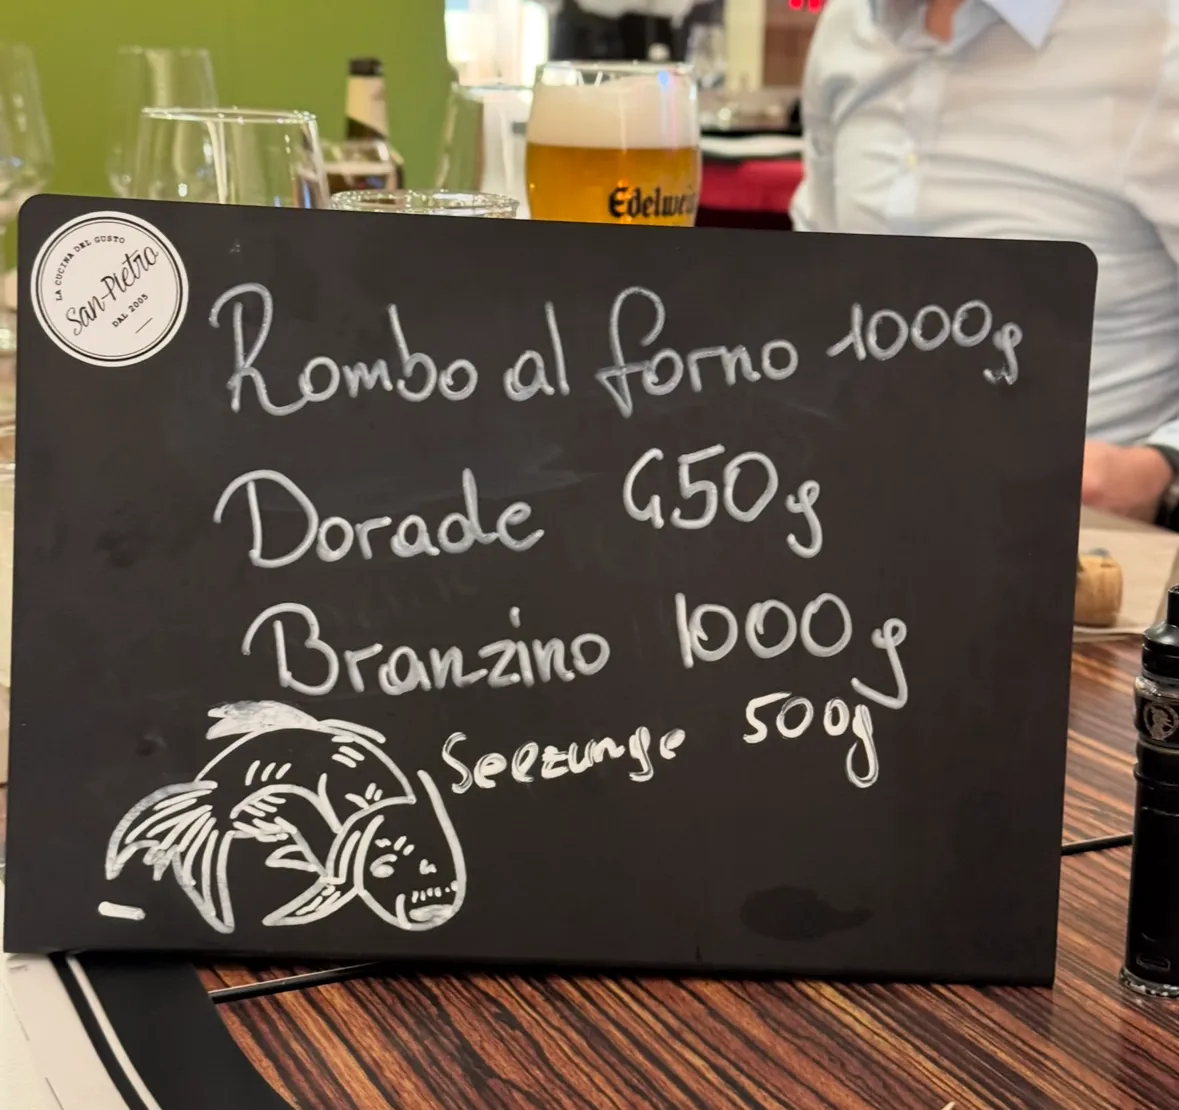 LA CUCINA DEL GUSTO
San-Pietro
DAL 2005
Edelwei
Rombo al forno 1000g
Dorade 450g
Branzino 1000g
Seezunge 500g